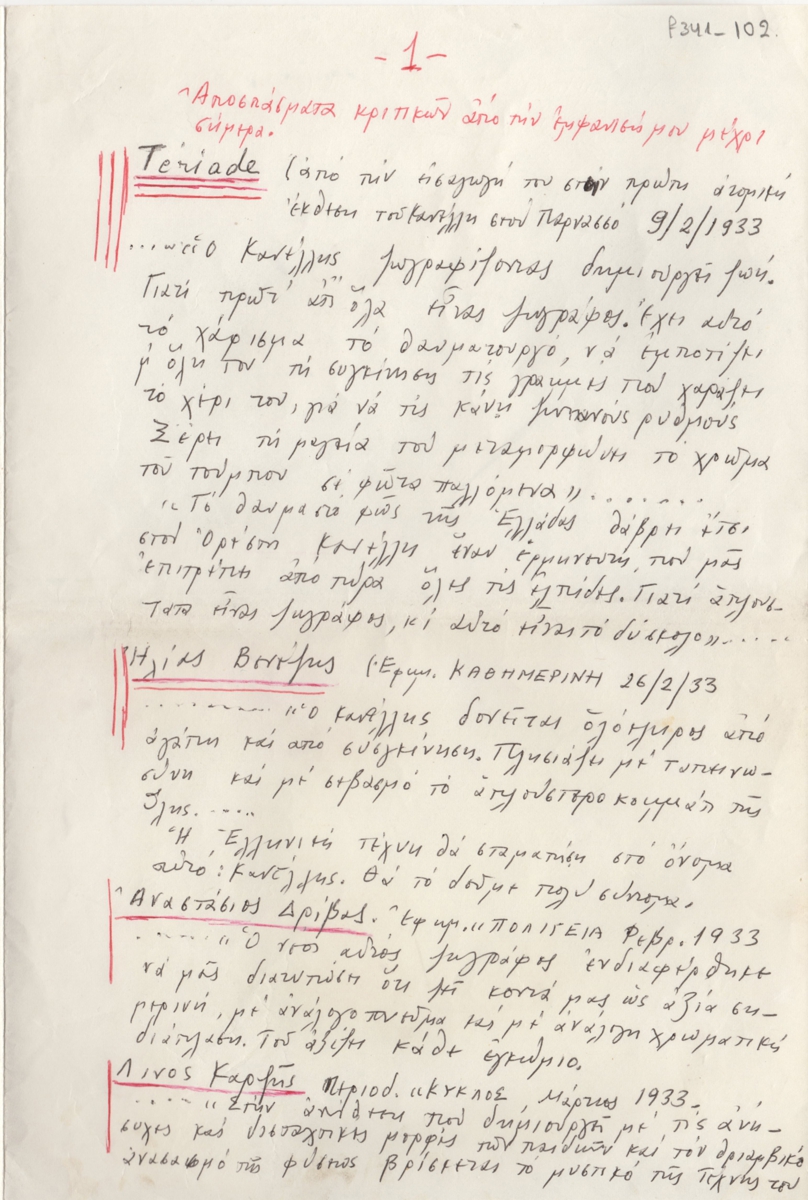 P341-102.
-1-
Ἀποσπάσματα κριτικῶν ἀπό τήν ἐμφάνισή μου μέχρι
σήμερα.
Tériade (ἀπό τήν εἰσαγωγή του στήν πρώτη ἀτομική
ἔκθεση τοῦ Κανέλλη στόν Παρνασσό 9/2/1933
..... «Ὁ Κανέλλης ζωγραφίζοντας δημιουργεῖ ζωή.
Γιατί πρῶτ' ἀπ' ὅλα εἶναι ζωγράφος. Ἔχει αὐτό
τό χάρισμα τό θαυματουργό, νά ἐμποτίζει
μ' ὅλη του τή συγκίνηση τίς γραμμές πού χαράζει
τό χέρι του, γιά νά τίς κάνη ζωντανούς ρυθμούς
Ξέρει τή μαγεία πού μεταμορφώνει τό χρῶμα
τοῦ τούμπου σέ φῶτα παλλόμενα».......
«Τό θαυμαστό φῶς τῆς Ἑλλάδας θἄβρει ἔτσι
στόν Ὀρέστη Κανέλλη ἕναν ἑρμηνευτή, πού μᾶς
ἐπιτρέπει ἀπό τώρα ὅλες τίς ἐλπίδες. Γιατί ἁπλούσ-
τατα εἶναι ζωγράφος, κι αὐτό εἶναι τό δύσκολο»......
Ηλίας Βενέζης (Ἐφημ. ΚΑΘΗΜΕΡΙΝΗ 26/2/33
.......... «Ὁ Κανέλλης δονεῖται ὁλόκληρος ἀπό
ἀγάπη καί από συγκίνηση. Πλησιάζει μέ ταπεινω-
σύνη καί μέ σεβασμό τό ἁπλούστερο κομμάτι τῆς
ὕλης.....
Ἡ Ἑλληνική τέχνη θά σταματήση στό ὄνομα
αὐτό: Κανέλλης. Θά τό δοῦμε πολύ σύντομα.
Ἀναστάσιος Δρίβας. Ἐφημ. «ΠΟΛΙΤΕΙΑ Φεβρ. 1933
...... «Ὁ νέος αὐτός ζωγράφος ἐνδιαφέρθηκε
νά μᾶς διατυπώση ὅτι ζεῖ κοντά μας ὡς ἀξία ση-
μερινή, μέ ἀνάλογο πνεῦμα καί μέ ἀνάλογη χρωματική
διάπλαση. Τοῦ ἀξίζει κάθε ἐγκώμιο.
Λίνος Καρζῆς Περιοδ. «ΚΥΚΛΟΣ Μάρτιος 1933-
..... «Στήν ἀντίθεση πού δημιουργεῖ μέ τίς ἀνή-
συχες καί δισταχτικές μορφές τῶν παιδιῶν καί τόν θριαμβικό
ἀνασασμό τῆς φύσεως βρίσκεται τό μυστικό τῆς τέχνης του